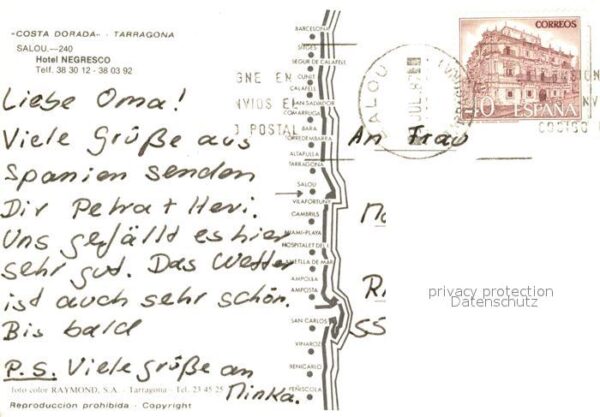 "COSTA DORADA" - TARRAGONA
SALOU.—240
Hotel NEGRESCO
Telf. 38 30 12 - 38 03 92
Liebe Oma!
Viele Grüße aus
Spanien senden
Dir Petra + Heri.
Uns gefällt es hier
sehr gut. Das Wetter
ist auch sehr schön.
Bis bald
P.S. Viele grüße an
Minka.
foto color RAYMOND, S.A. - Tarragona - Tel. 23 45 25
Reproduccion prohibida - Copyright
BARCELONA
SITGES
SEGUR DE CALAFELL
CUNIT
CALAFELL
SAN SALVADOR
COMARRUGA
BARA
TORREDEMBARRA
ALTAFULLA
TARRAGONA
SALOU
VILAFORTUNY
CAMBRILS
MIAMI-PLAYA
HOSPITALET DEL I.
AMETLLA DE MAR
AMPOLLA
AMPOSTA
SAN CARLOS
VINAROZ
BENICARLO
PEÑISCOLA
GNE EN
NVIOS EL
O POSTAL
SALOU
JUL
CORREOS
40 ESPAÑA
CODIGO
An Frau
55
privacy protection
Datenschutz